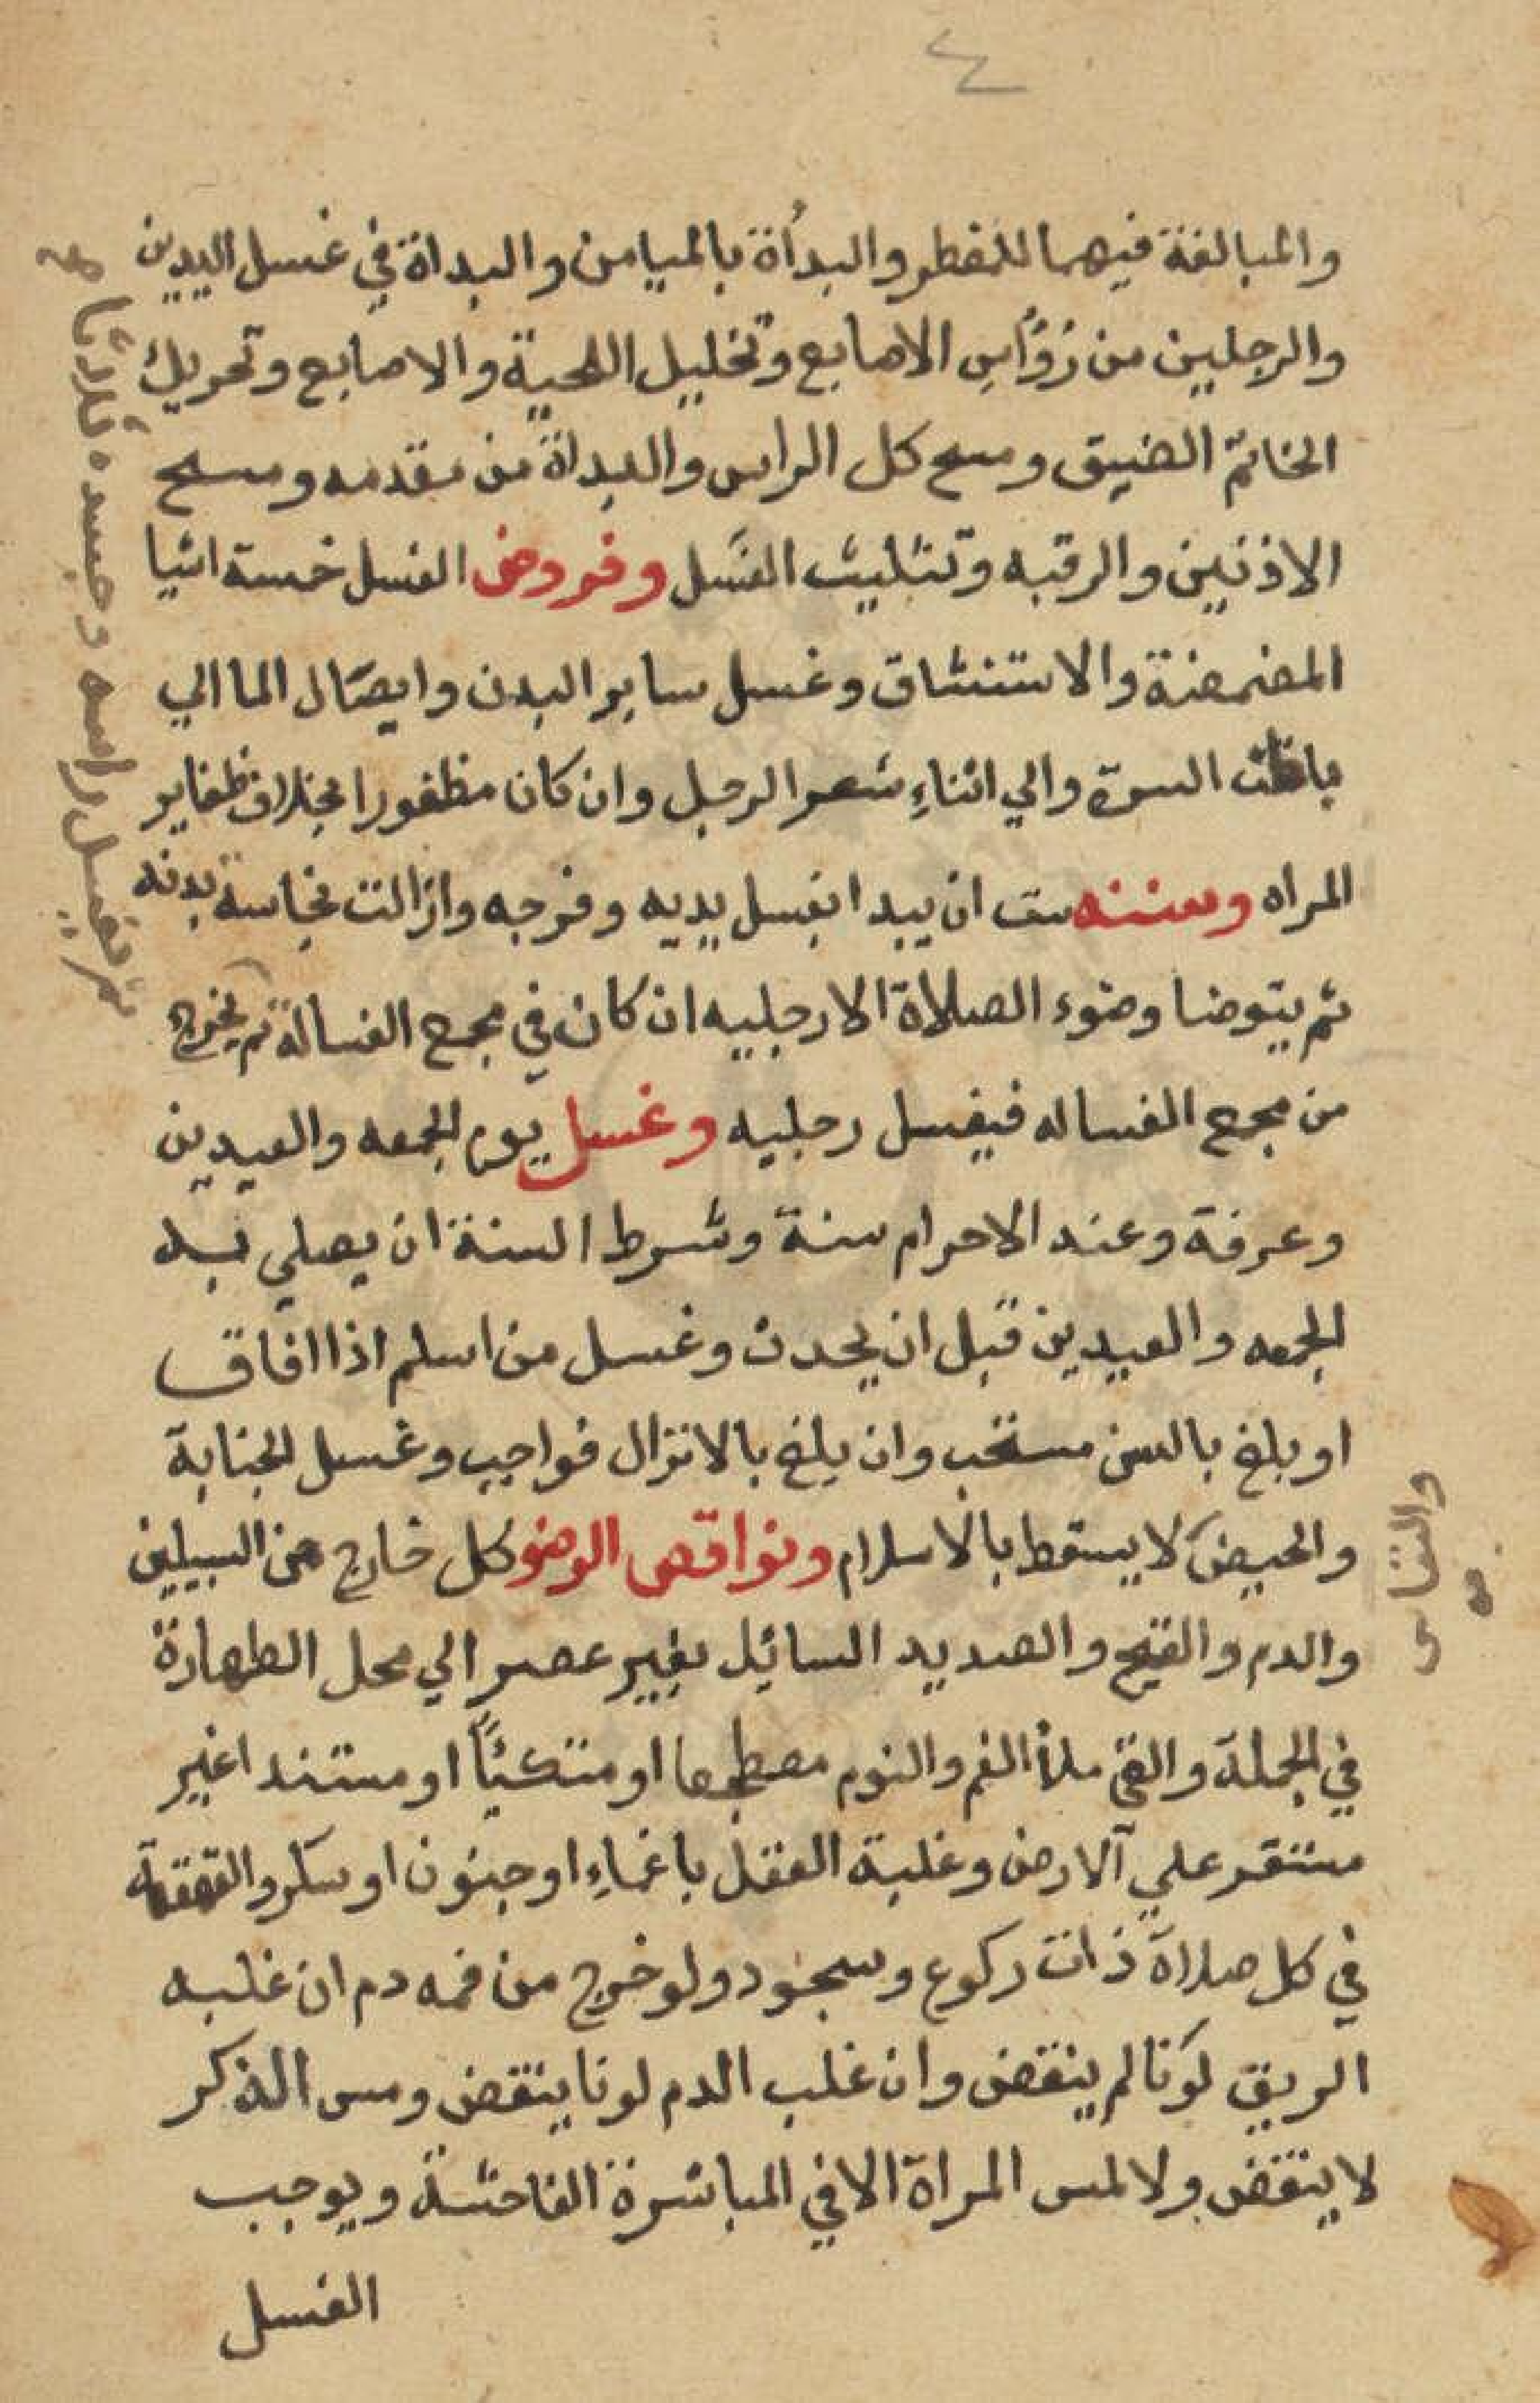 ٤
والمبالغة فيهما للمفطر والبدأة بالميامن والبداة في غسل اليدين
والرجلين من رؤاس الاصابع وتخليل اللحية والاصابع وتحريك
الخاتم الضيق ومسح كل الراس والبداة من مقدمه ومسح
الاذنين والرقبه وتثليث الغسل وفروض الغسل خمسة اشيا
المضمضة والاستنشاق وغسل ساير البدن وايصال الما الي
باطن السرة والي اثناءِ شعر الرجل وان كان مظفورا بخلاف ظفاير
المراه وسننه ست ان يبدا بغسل يديه وفرجه وازالت نجاسة بدنه
ثم يتوضا وضوء الصلاة الا رجليه ان كان في مجمع الغسالة ثم يخرج
من مجمع الغساله فيغسل رجليه وغسل يوم الجمعه والعيدين
وعرفة وعند الاحرام سنة وشرط السنة ان يصلي به
الجمعه والعيدين قبل ان يحدث وغسل من اسلم اذا افاق
او بلغ بالسن مستحب وان بلغ بالانزال فواجب وغسل الجنابة
والحيض لا يسقط بالاسلام ونواقض الوضو كل خارج من السبيلين
والدم والقيح والصديد السائيل بغير عصر الي محل الطهارة
في الجملة والقئ ملأ الفم والنوم مصطجعا او متكيئاً او مستندا غير
مستقر علي الارض وغلبة العقل باغماءِ او جنون او سكر والقهقهة
في كل صلاة ذات ركوع وسجود ولو خرج من فمه دم ان غلبه
الريق لونا لم ينقض وان غلب الدم لونا ينقض ومس الذكر
لا ينقض ولا لمس المراة الا في المباشرة الفاحشة ويوجب
الغسل
ثم يغسل راسه وجسده ثلاثا صح
والنفاس